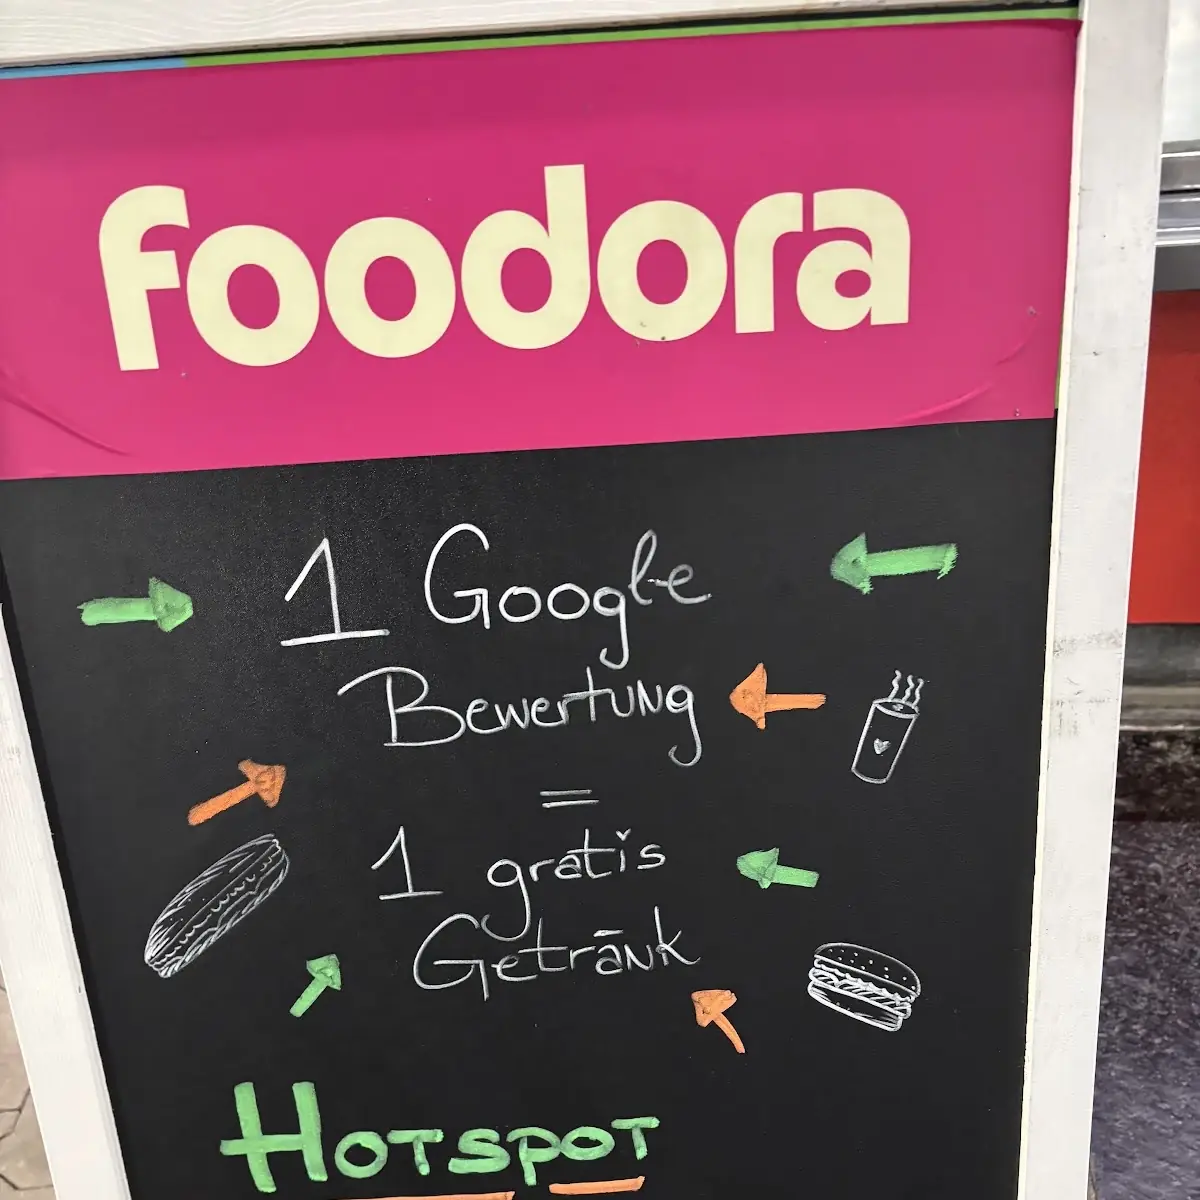 foodora
1 Google
Bewertung
=
1 gratis
Getränk
HOTSPOT